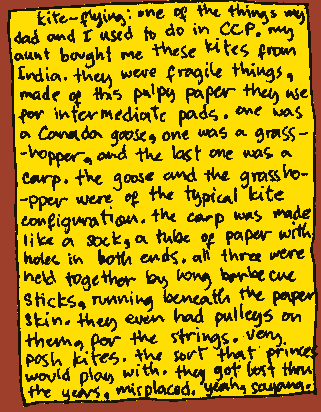 kite-flying: one of the things my
dad and I used to do in CCP. my
aunt bought me these kites from
India. they were fragile things,
made of this pulpy paper they use
for intermediate pads. one was
a Canada goose, one was a grass-
-hopper, and the last one was a
carp. the goose and the grassho-
-pper were of the typical kite
configuration. the carp was made
like a sock, a tube of paper with
holes in both ends. all three were
held together by long barbecue
sticks, running beneath the paper
skin. they even had pulleys on
them, for the strings. very
posh kites. the sort that princes
would play with. they got lost thru
the years, misplaced. yeah, sayang.